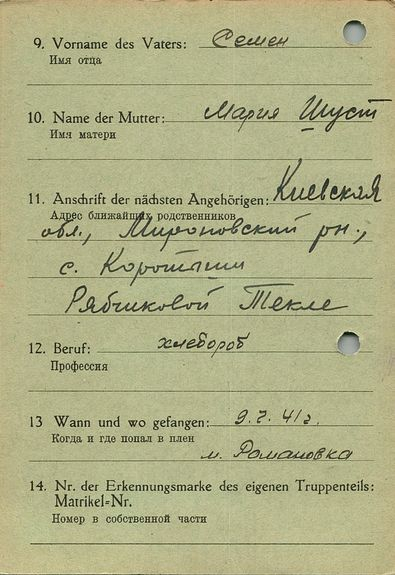 9. Vorname des Vaters: Семен
Имя отца
10. Name der Mutter: Мария Шуст
Имя матери
11. Anschrift der nächsten Angehörigen: Киевская
Адрес ближайших родственников
обл., Мироновский рн.,
с. Коротыщи
Рябчиковой Текле
12. Beruf: хлебороб
Профессия
13 Wann und wo gefangen: 9.7.41г.
Когда и где попал в плен
м. Романовка
14. Nr. der Erkennungsmarke des eigenen Truppenteils:
Matrikel=Nr.
Номер в собственной части